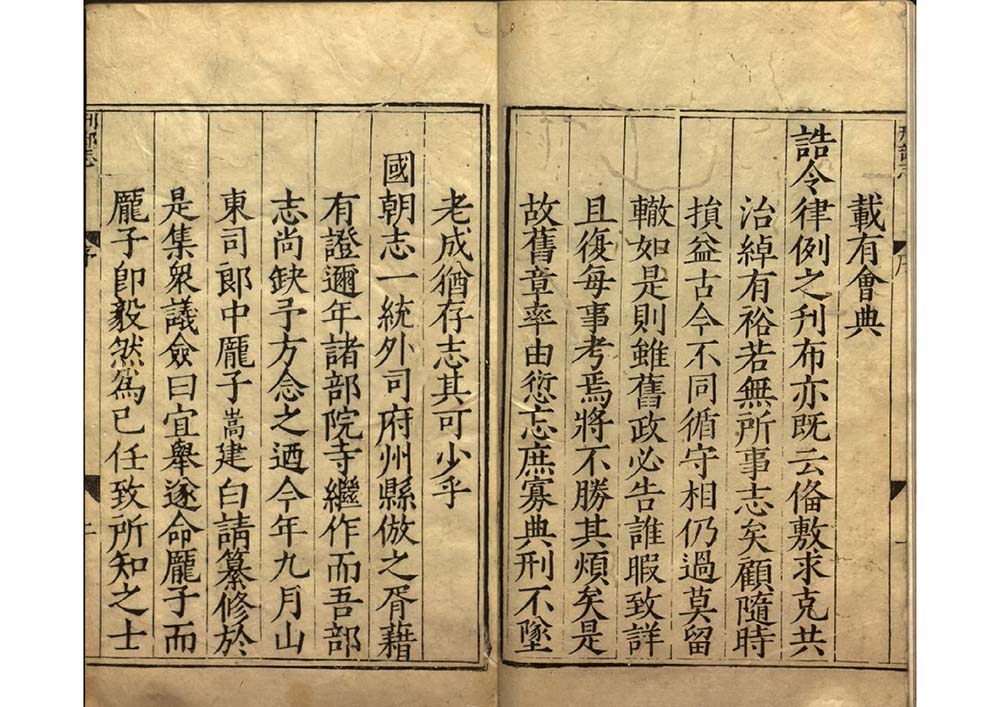 刑部志
序
載有會典
誥令律例之刋布亦既云俻敷求克共
治綽有裕若無所事志矣顧隨時
損益古今不同循守相仍過莫留
轍如是則雖舊政必告誰暇致詳
且復每事考焉將不勝其煩矣是
故舊章率由愆忘庶寡典刑不墜
老成猶存志其可少乎
國朝志一統外司府州縣倣之胥藉
有證邇年諸部院寺繼作而吾部
志尚缺予方念之迺今年九月山
東司郎中龎子嵩建白請纂修於
是集衆議僉曰宜舉遂命龎子而
龎子卽毅然爲己任致所知之士
刑部志
序